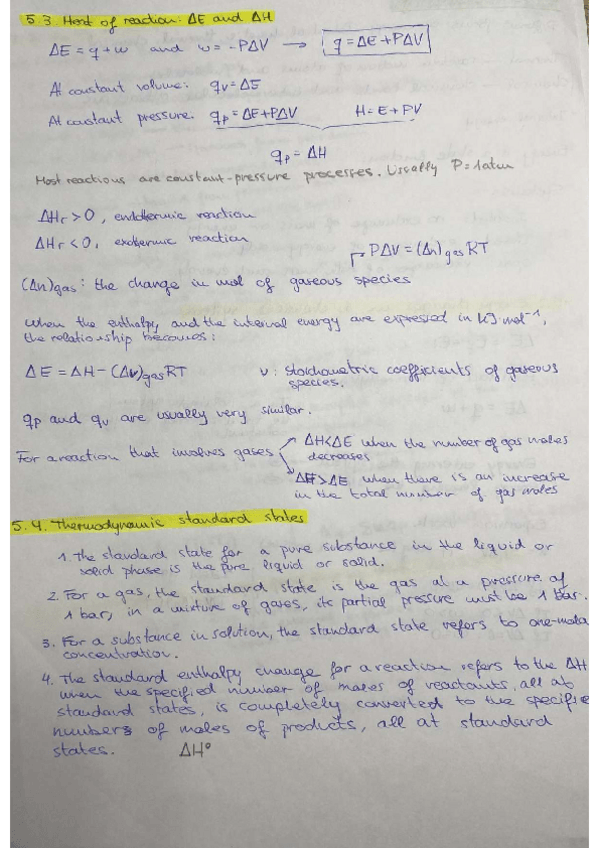 5.3. Heat of reaction: ΔE and ΔH
ΔE = q + w and w = -PΔV → q = ΔE + PΔV
At constant volume: qv = ΔE
At constant pressure. qp = ΔE+PΔV H = E + PV
qp = ΔH
Most reactions are constant-pressure processes. Usually P = 1atm
ΔHr > 0, endothermic reaction
ΔHr < 0, exothermic reaction
PΔV = (Δn)gas RT
(Δn)gas: the change in mol of gaseous species
When the enthalpy and the internal energy are expressed in kJ mol⁻¹,
the relationship becomes:
ΔE = ΔH - (Δν)gas RT ν: stoichiometric coefficients of gaseous
species.
qp and qv are usually very similar.
For a reaction that involves gases
ΔH<ΔE when the number of gas moles
decreases
ΔH>ΔE when there is an increase
in the total number of gas moles
5.4. Thermodynamic standard states
1. The standard state for a pure substance in the liquid or
solid phase is the pure liquid or solid.
2. For a gas, the standard state is the gas at a pressure of
1 bar, in a mixture of gases, its partial pressure must be 1 bar.
3. For a substance in solution, the standard state refers to one-mola
concentration.
4. The standard enthalpy change for a reaction refers to the ΔH
when the specified number of moles of reactants, all at
standard states, is completely converted to the specifie
numbers of moles of products, all at standard
states. ΔH°